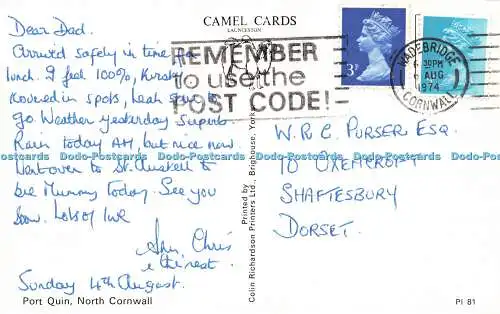 CAMEL CARDS
LAUNCESTON
Dear Dad.
Arrived safely in time for
lunch. I feel 100%, Kirsty
Covered in spots, Leah
go Weather yesterday Superb
Rain today AM, but nice now.
Went over to St. Austell to
see Mummy Today. See you
Soon. Lots of love
Chris
& the rest
Sunday 4th August.
Port Quin, North Cornwall
Printed by
Colin Richardson Printers Ltd., Brighouse, Yorks
REMEMBER
to use the
POST CODE!
3P
WADEBRIDGE
30PM
AUG
1974
CORNWALL
W.R.C. PURSER ESQ.
10
SHAFTESBURY
DORSET.
PI 81
Dodo-Postcards Dodo-Postcards Dodo-Postcards Dodo-Postcards Dodo-Postcards